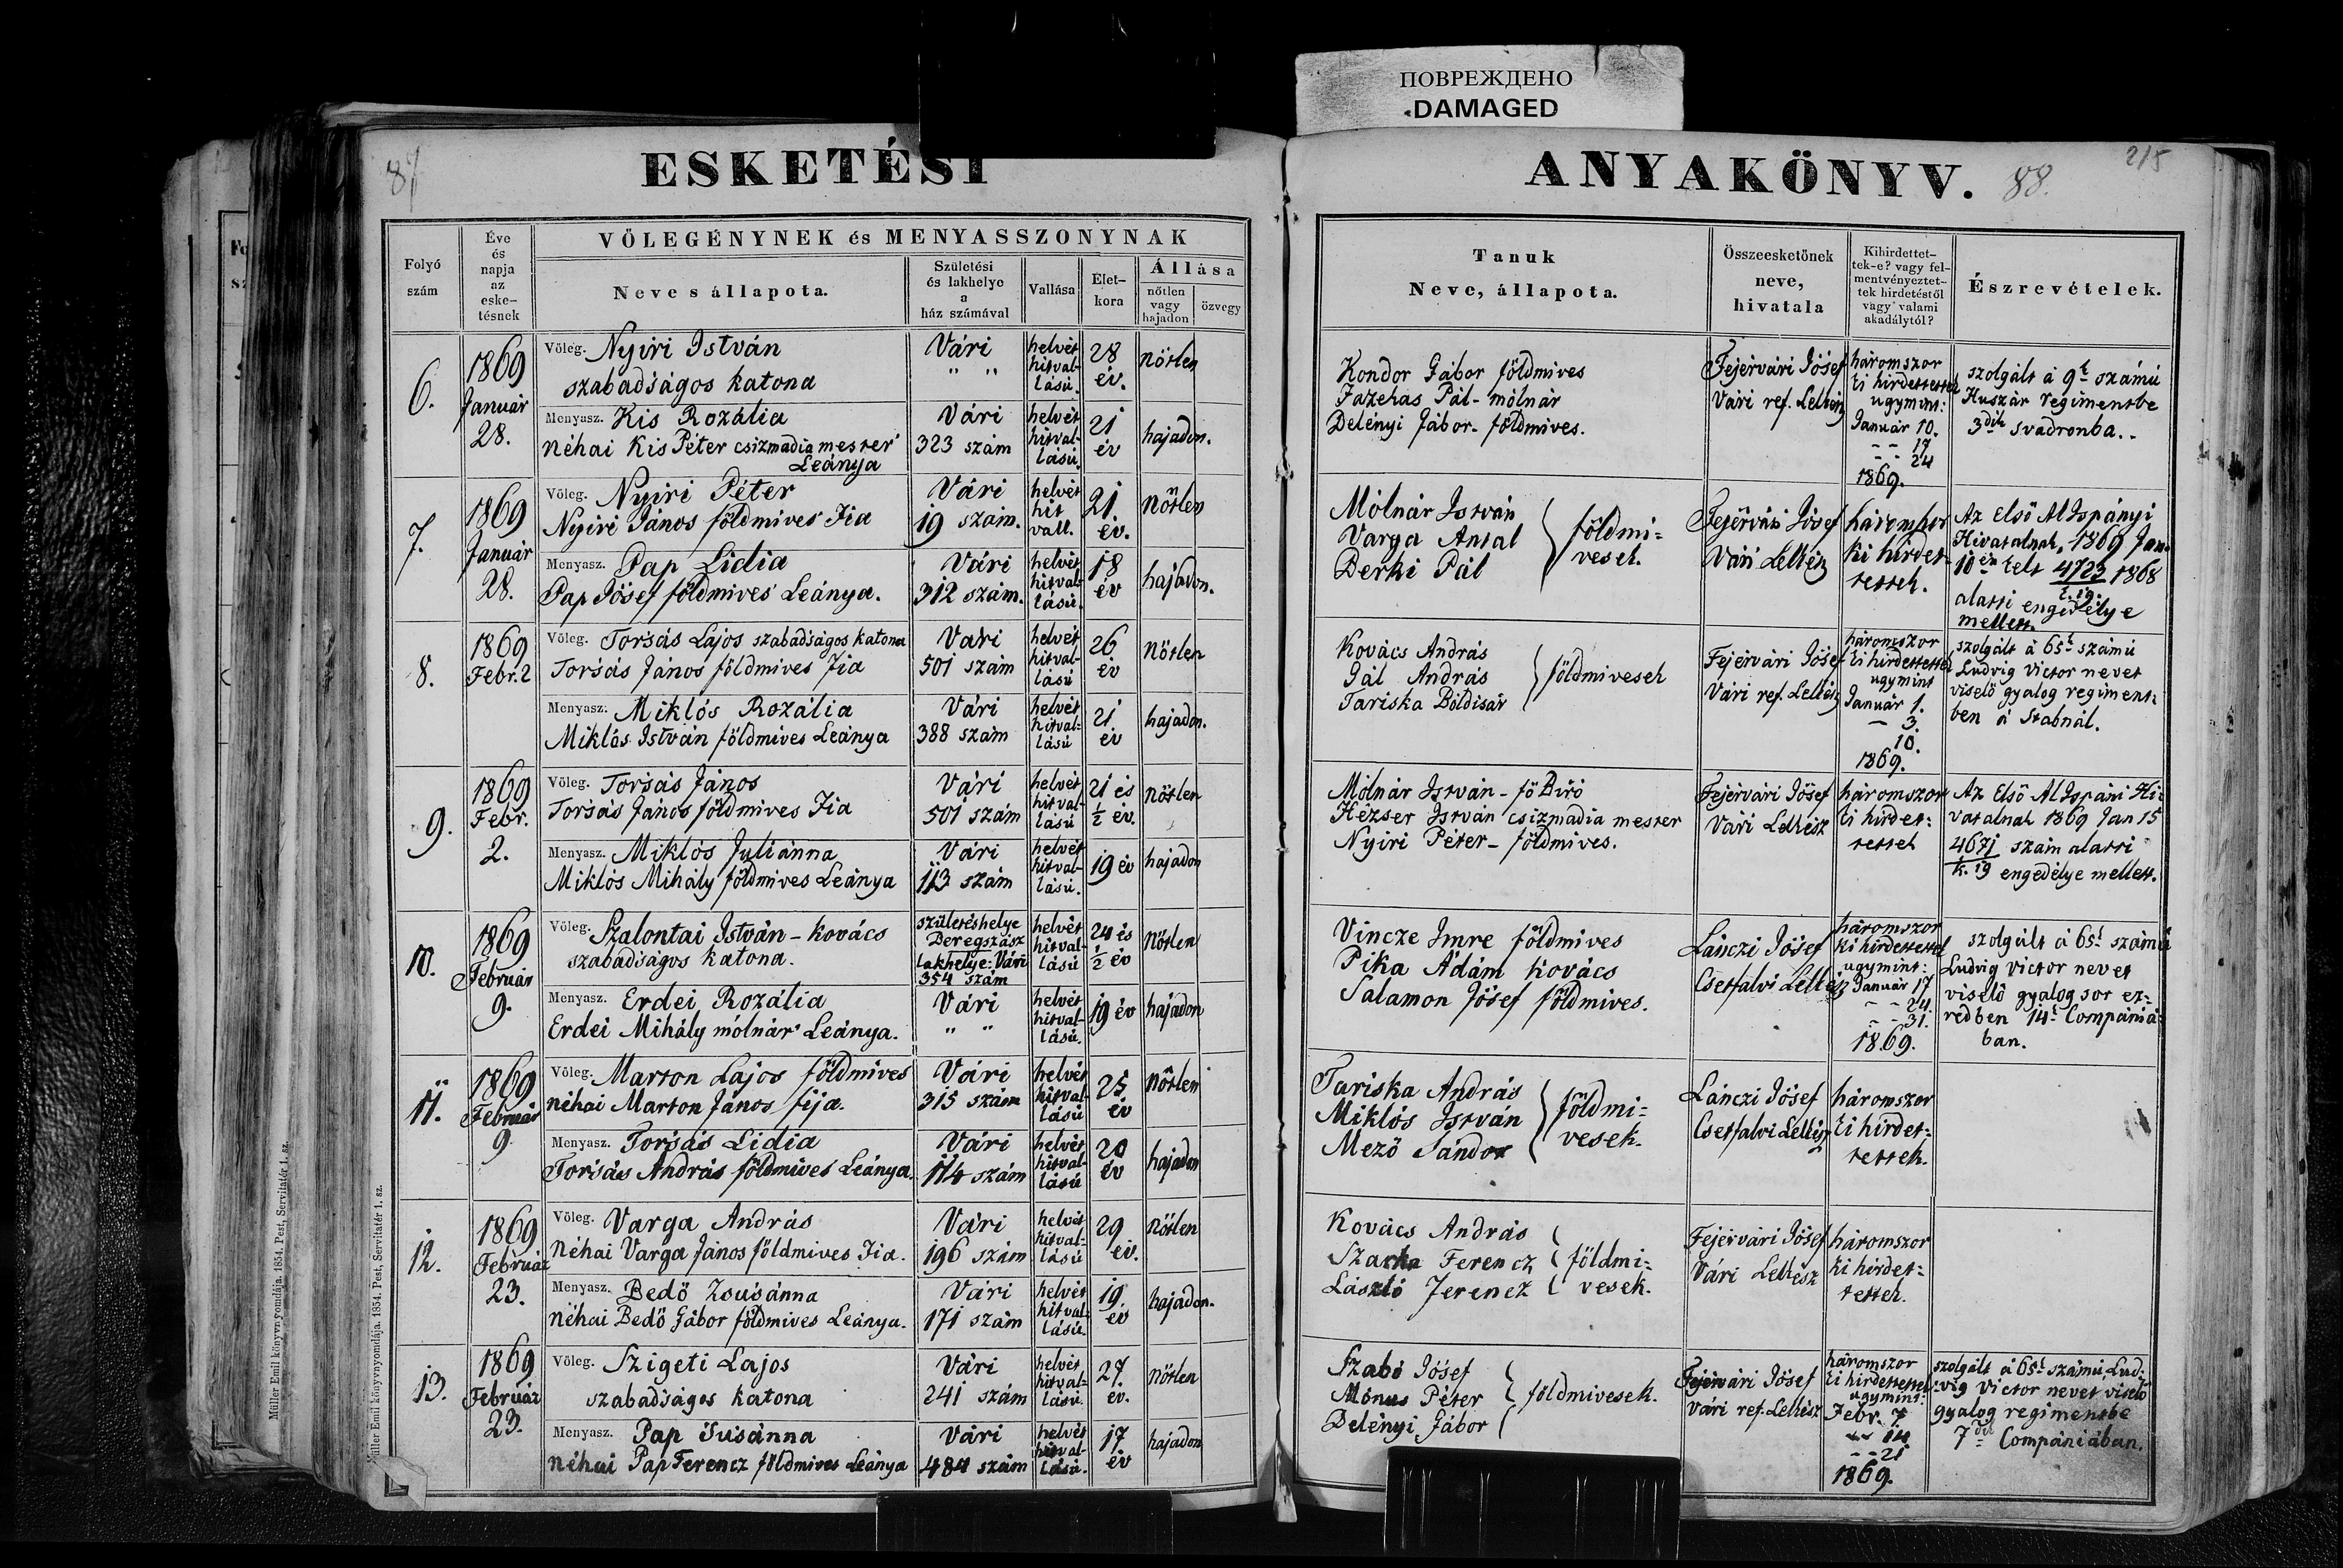 ПОВРЕЖДЕНО
DAMAGED
87
ESKETÉSI
Folyó
szám
Éve
és
napja
az
eske-
tésnek
VÖLEGÉNYNEK és MENYASSZONYNAK
Neve s állapota.
Születési
és lakhelye
a
ház számával
Vallása
Élet-
kora
Állása
nőtlen
vagy
hajadon
özvegy
6.
1869
Január
28.
Völeg. Nyiri István
szabadságos katona
Vári
" "
helvét
hitval-
lású.
28
év.
nőtlen
Menyasz. Kis Rozália
Néhai Kis Péter csizmadia mester
Leánya
Vári
323 szám
helvét
hitval-
lású.
21
év
hajadon.
7.
1869
Január
28.
Völeg. Nyiri Péter
Nyiri János földmives Fia
Vári
19 szám.
helvét
hit
vall.
21.
év.
Nőtlen
Menyasz. Pap Lidia
Pap Jósef földmives Leánya.
Vári
312 szám.
helvét
hitval-
lású.
18
év
hajadon.
8.
1869
Febr. 2
Völeg. Torsás Lajos szabadságos katona
Torsás János földmives Fia
Vari
501 szám
helvét
hitval-
lású
26
év
Nőtlen
Menyasz. Miklós Rozália
Miklós István földmives Leánya
Vári
388 szám
helvét
hitval-
lású
21
év
hajadon.
9.
1869
Febr.
2.
Völeg. Torsás János
Torsás János földmives Fia
Vári
501 szám
helvét
hitval-
lású
21 és
1/2 év.
nőtlen
Menyasz. Miklós Juliánna
Miklós Mihály földmives Leánya
Vári
113 szám
helvét
hitval-
lású.
19 év
hajadon
10.
1869
Február
9.
Völeg. Szalontai István - kovács
szabadságos katona.
születéshelye
Beregszász
lakhelye: Vári
354 szám
helvét
hitval-
lású
24 és
1/2 év
Nőtlen
Menyasz. Erdei Rozália
Erdei Mihály mólnár Leánya.
Vári
" "
helvét
hitval-
lású.
19 év
hajadon
11.
1869
Február
9
Völeg. Marton Lajos földmives
néhai Marton János fija.
Vári
315 szám
helvét
hitval-
lású
25
év
Nőtlen
Menyasz. Torsás Lidia
Torsás András földmives Leánya.
Vári
114 szám
helvét
hitval-
lású
20
év
hajadon
12.
1869
Február
23.
Völeg. Varga András
Néhai Varga János földmives Fia.
Vári
196 szám
helvét
hitval-
lású
29
év.
Nőtlen
Menyasz. Bedő Zsusánna
néhai Bedő Gábor földmives Leánya.
Vári
171 szám
helvét
hitval-
lású.
19
év
hajadon.
13.
1869
Február
23.
Völeg. Szigeti Lajos
szabadságos katona
Vári
241 szám
helvét
hitval-
lású.
27
év.
Nőtlen
Menyasz. Pap Susánna
néhai Pap Ferencz földmives Leánya
Vári
484 szám
helvét
hitval-
lású.
17
év
hajadon
Müller Emil könyvnyomdája. 1854. Pest, Servitatér 1. sz.
Müller Emil könyvnyomdája. 1854. Pest, Servitatér 1. sz.
ANYAKÖNYV.
88.
215
Tanuk
Neve, állapota.
Összeesketőnek
neve,
hivatala
Kihirdettet-
tek-e? vagy fel-
mentvényeztet-
tek hirdetéstől
vagy valami
akadálytól?
Észrevételek.
Kondor Gábor földmives
Fazekas Pál - mólnár
Delényi Gábor - földmives.
Fejérvári Jósef
Vári ref. Lelkész
háromszor
ki hirdettettek
ugymint:
Január 10.
- - 17
- - 24
1869.
szolgált á 9k számú
Huszár regimentbe
3dik svadronba..
Mólnár István
Varga Antal
Berki Pál
földmi=
vesek.
Fejérvári Jósef
Vári Lelkész
háromszor
ki hirdet-
tettek.
Az Első AlIspányi
Hivatalnak, 1869 Jan.
10én kelt 4723 1868
k. ig.
alatti engedélye
mellett.
Kovács András
Gál András
Tariska Boldisár
földmivesek
Fejérvári Jósef
Vári ref. Lelkész
háromszor
ki hirdettettek
ugymint
Január 1.
- 3.
10.
1869.
szolgált á 65k számú
Ludvig Victor nevet
viselő gyalog regiment:
ben á Stabnál.
Mólnár István - fő Biró
Hézser István csizmadia mester
Nyiri Péter - földmives.
Fejérvári Jósef
Vári Lelkész
háromszor
ki hirdet:
tettek
Az Első AlIspáni Hi:
vatalnak 1869 Jan 15
4671 szám alatti
k. ig engedélye mellett.
Vincze Imre földmives
Pika Ádám kovács
Salamon Jósef földmives.
Lánczi Jósef
Csetfalvi Lelkész
háromszor
ki hirdettettek
ugymint:
Január 17
- - 24
- - 31.
1869.
szolgált á 65k számú
Ludvig Victor nevet
viselő gyalog sor ez=
redben 14k Compániá=
ban.
Tariska András
Miklós István
Mező Sándor
földmi=
vesek.
Lánczi Jósef
Csetfalvi Lelkész
háromszor
ki hirdet=
tettek.
Kovács András
Szarka Ferencz
László Ferencz
földmi=
vesek.
Fejérvári Jósef
Vári Lelkész
háromszor
ki hirdet=
tettek.
Szabó Jósef
Mónus Péter
Delényi Gábor
földmivesek.
Fejérvári Jósef
Vári ref. Lelkész
háromszor
ki hirdettettek
ugymint:
Febr. 7
- - 14
- - 21
1869.
szolgált á 65k számú Lud=
vig Victor nevet viselő
gyalog regimentbe
7dik Compániában.